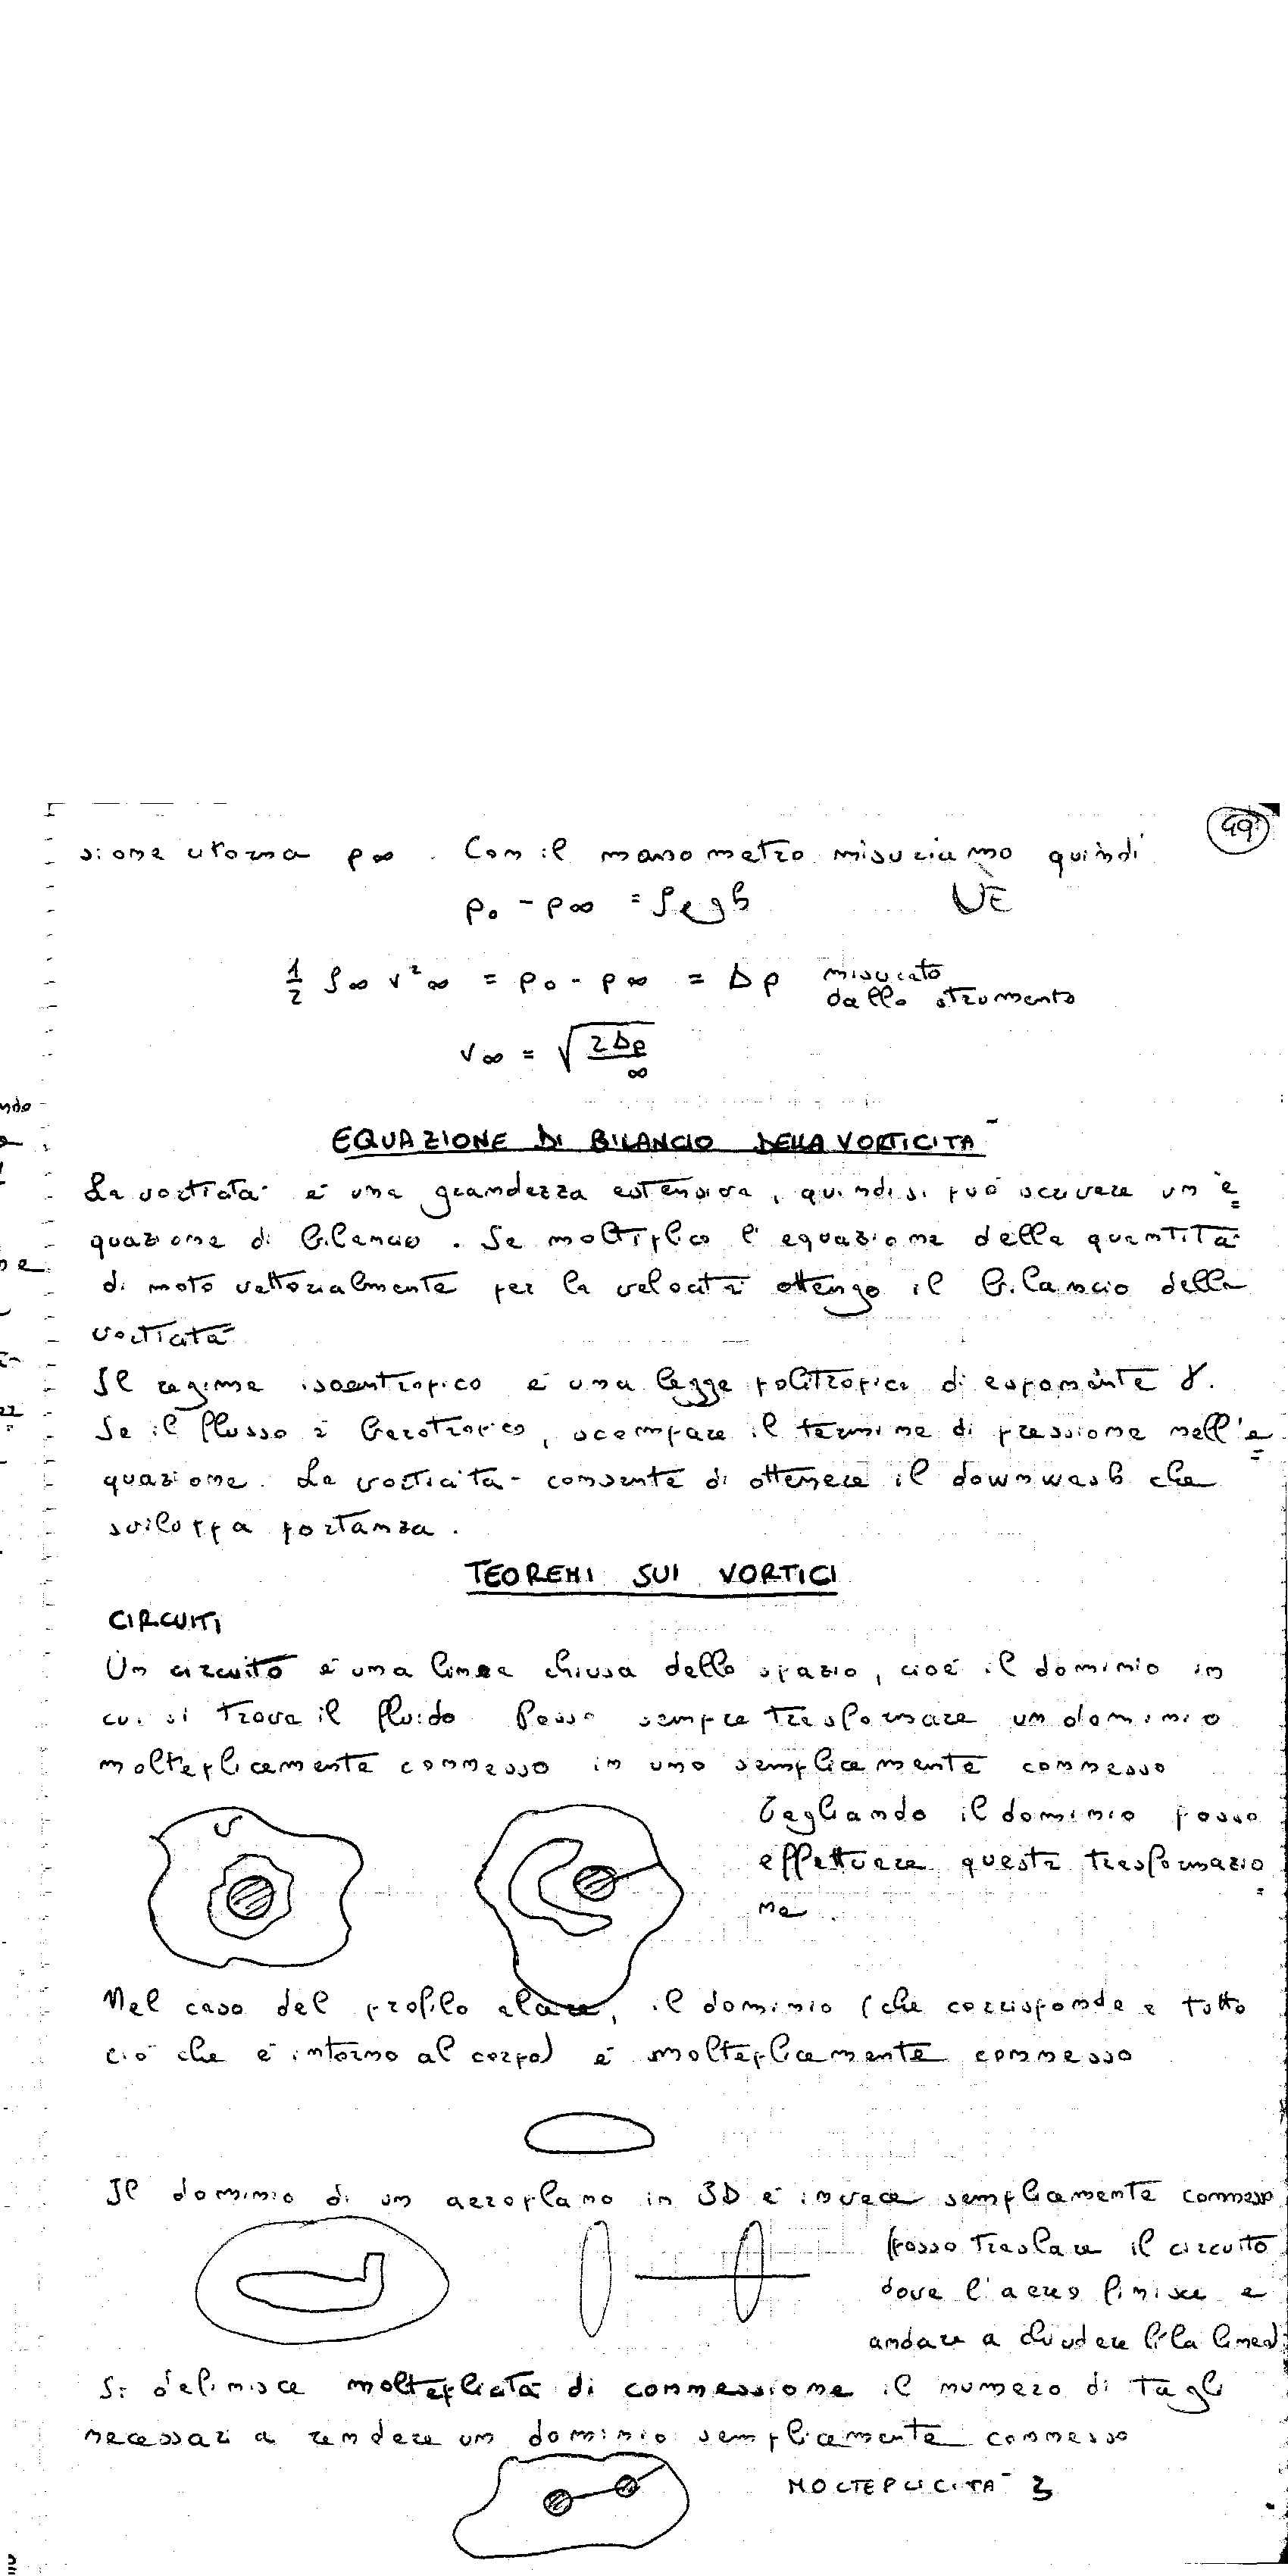 49
sione intorno p∞. Con il manometro misuriamo quindi
p₀ - p∞ = ρegh
½ ρ∞ v²∞ = p₀ - p∞ = Δp misurato
dallo strumento
v∞ = √(2Δp/∞)
ndo
EQUAZIONE DI BILANCIO DELLA VORTICITÀ
La vorticità è una grandezza estensiva, quindi si può scrivere un'e
quazione di bilancio. Se moltiplico l'equazione della quantità
di moto vettorialmente per la velocità ottengo il bilancio della
vorticità
Il regime isoentropico è una legge politropica di esponente γ.
Se il flusso è barotropico, scompare il termine di pressione nell'e
quazione. La vorticità consente di ottenere il downwash che
sviluppa portanza.
TEOREMI SUI VORTICI
CIRCUITI
Un circuito è una linea chiusa dello spazio, cioè il dominio in
cui si trova il fluido. Posso sempre trasformare un dominio
molteplicemente connesso in uno semplicemente connesso
Tagliando il dominio posso
effettuare questa trasformazio
ne.
Nel caso del profilo alare, il dominio (che corrisponde a tutto
ciò che è intorno al corpo) è molteplicemente connesso
Il dominio di un aeroplano in 3D è invece semplicemente connesso
(posso traslare il circuito
dove l'aereo finisce e
andare a chiudere lì la linea)
Si definisce molteplicità di connessione il numero di tagli
necessari a rendere un dominio semplicemente connesso
MOLTEPLICITÀ 3